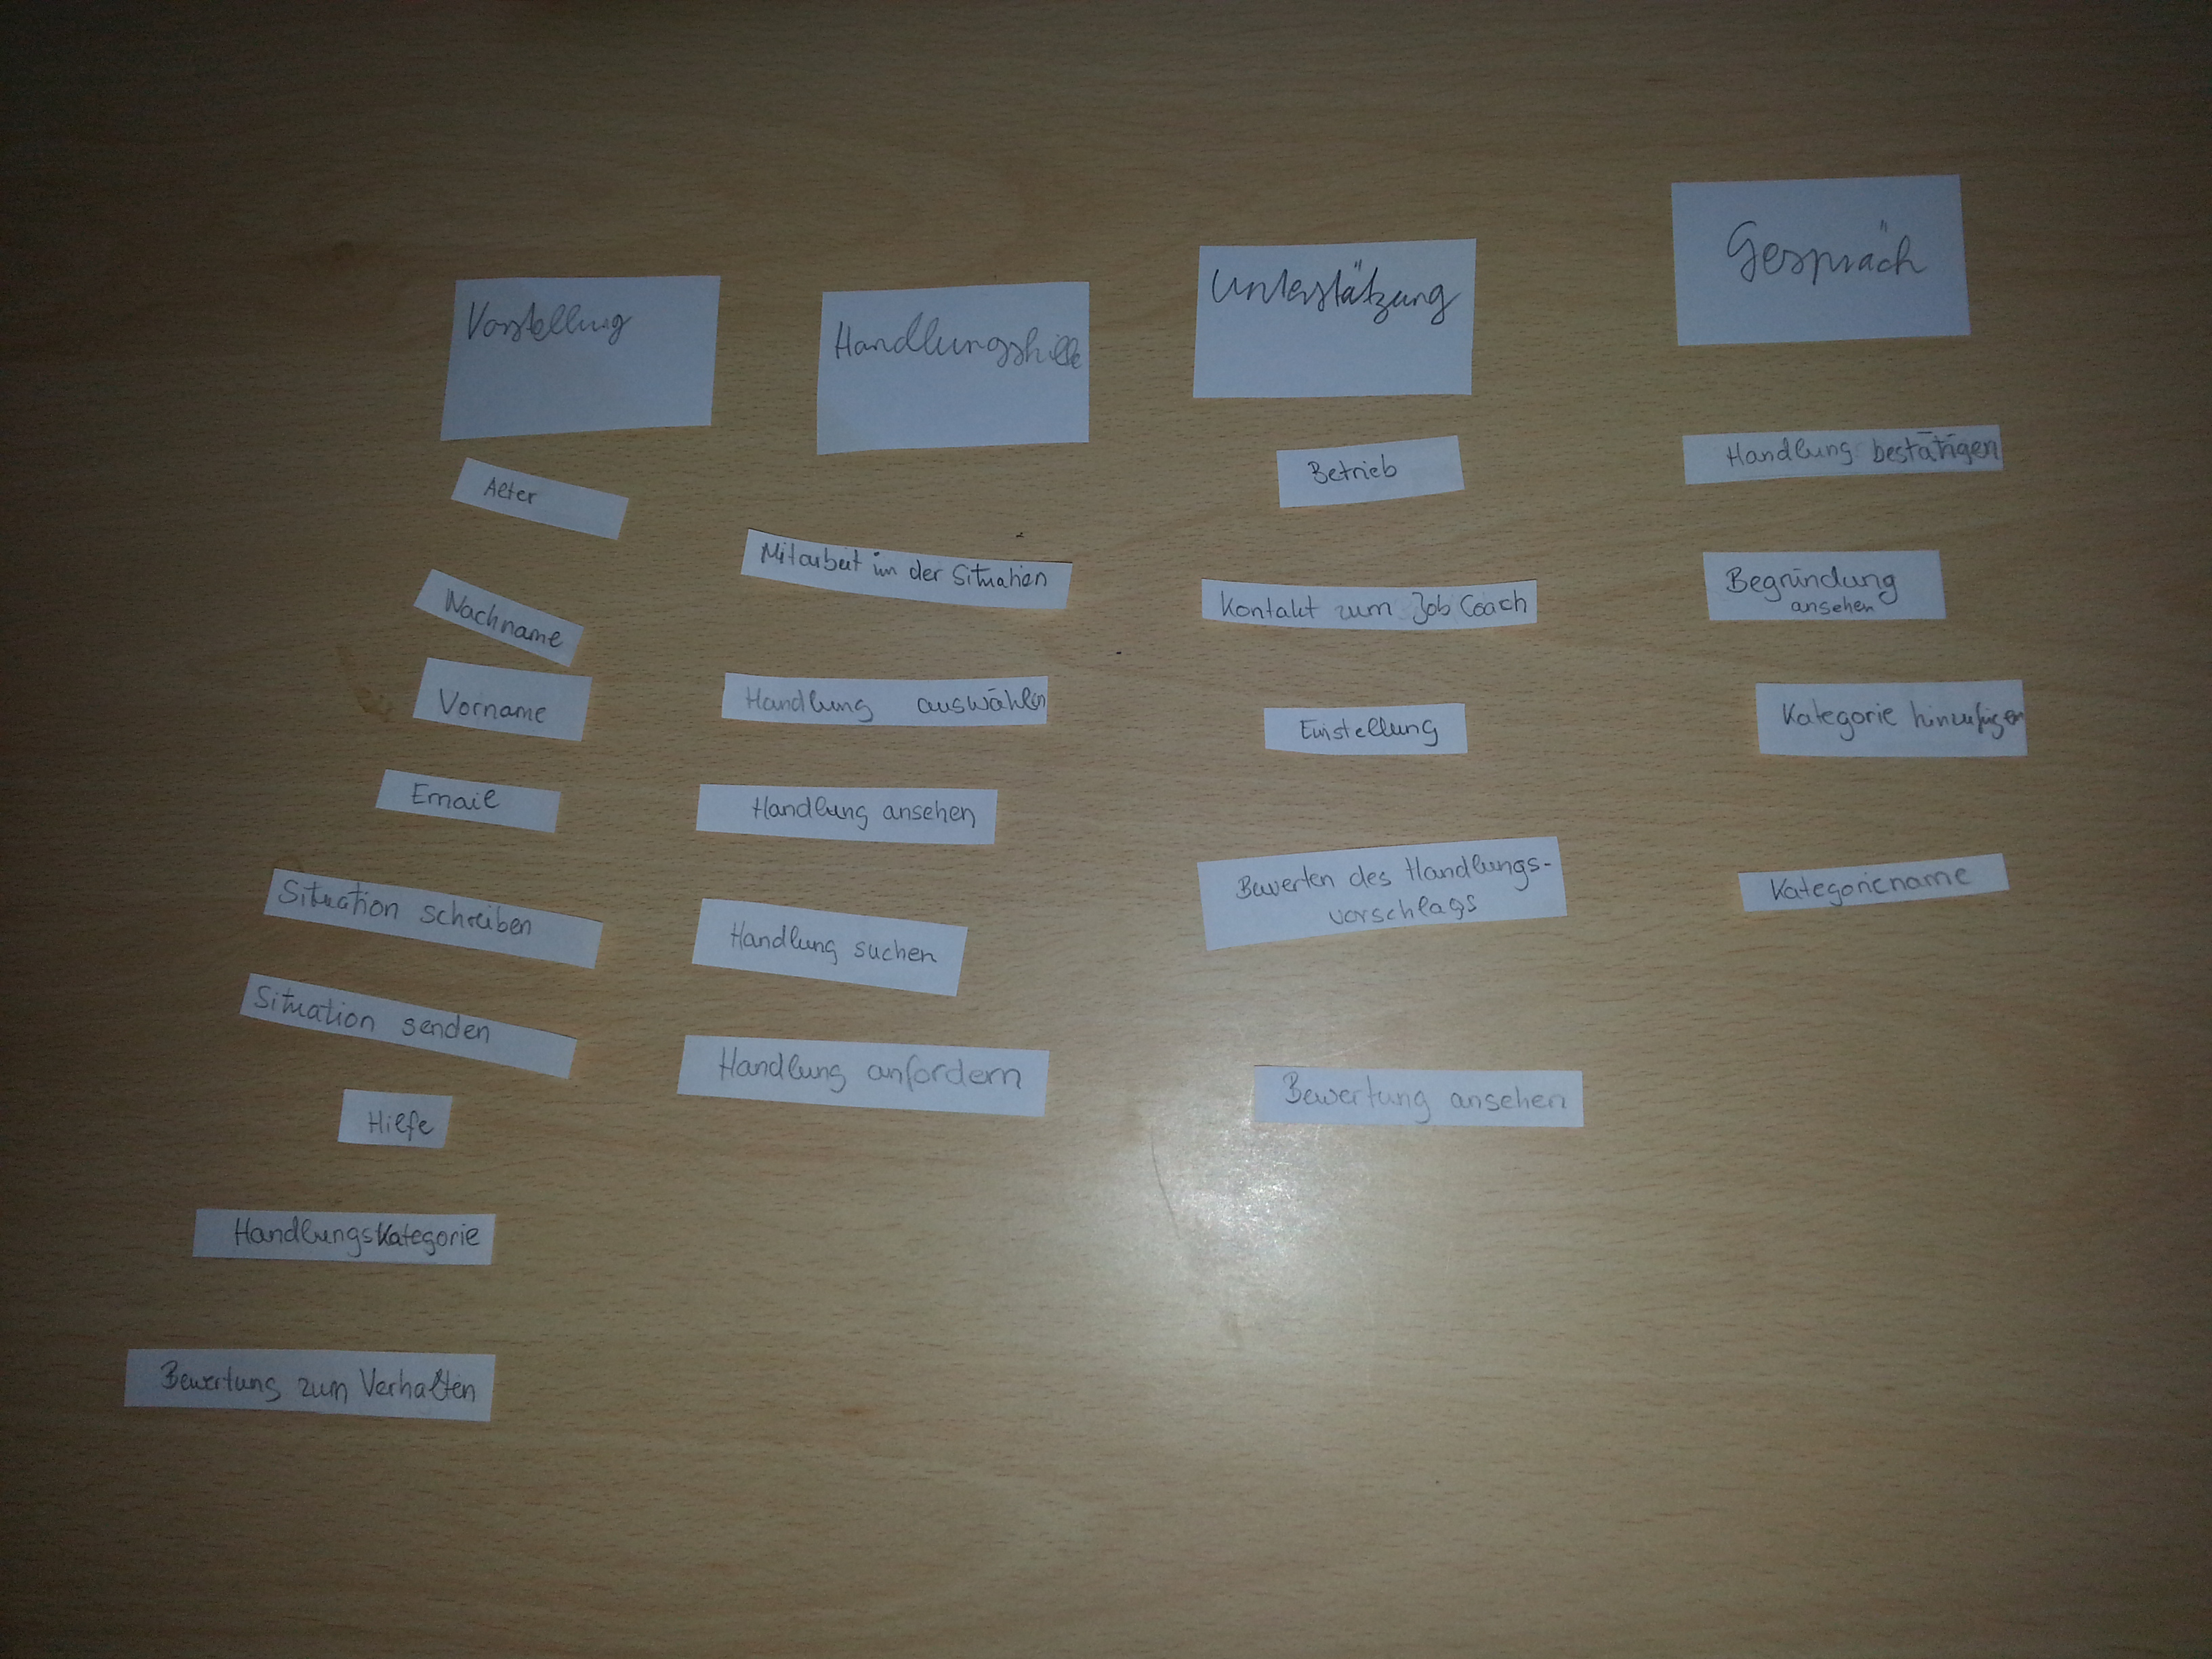 Vorstellung
Alter
Nachname
Vorname
Email
Situation schreiben
Situation senden
Hilfe
Handlungskategorie
Bewertung zum Verhalten
Handlungshilfe
Mitarbeit in der Situation
Handlung auswählen
Handlung ansehen
Handlung suchen
Handlung anfordern
Unterstützung
Betrieb
Kontakt zum Job Coach
Einstellung
Bewerten des Handlungs-
vorschlags
Bewertung ansehen
Gespräch
Handlung bestätigen
Begründung
ansehen
Kategorie hinzufügen
Kategoriename